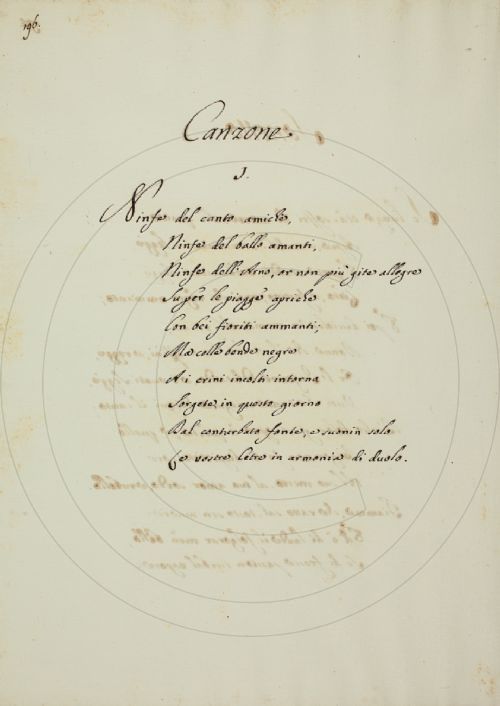 196.
Canzone
1.
Ninfe del canto amiche,
Ninfe del ballo amanti,
Ninfe dell'Arno, or non più gite allegre
Su per le piagge apriche
Con bei fioriti ammanti;
Ma colle bende negre
A i crini incolti intorno
Sorgete in questo giorno
Dal conturbato fonte, e suonin solo
Le vostre Cetre in armonia di duolo.